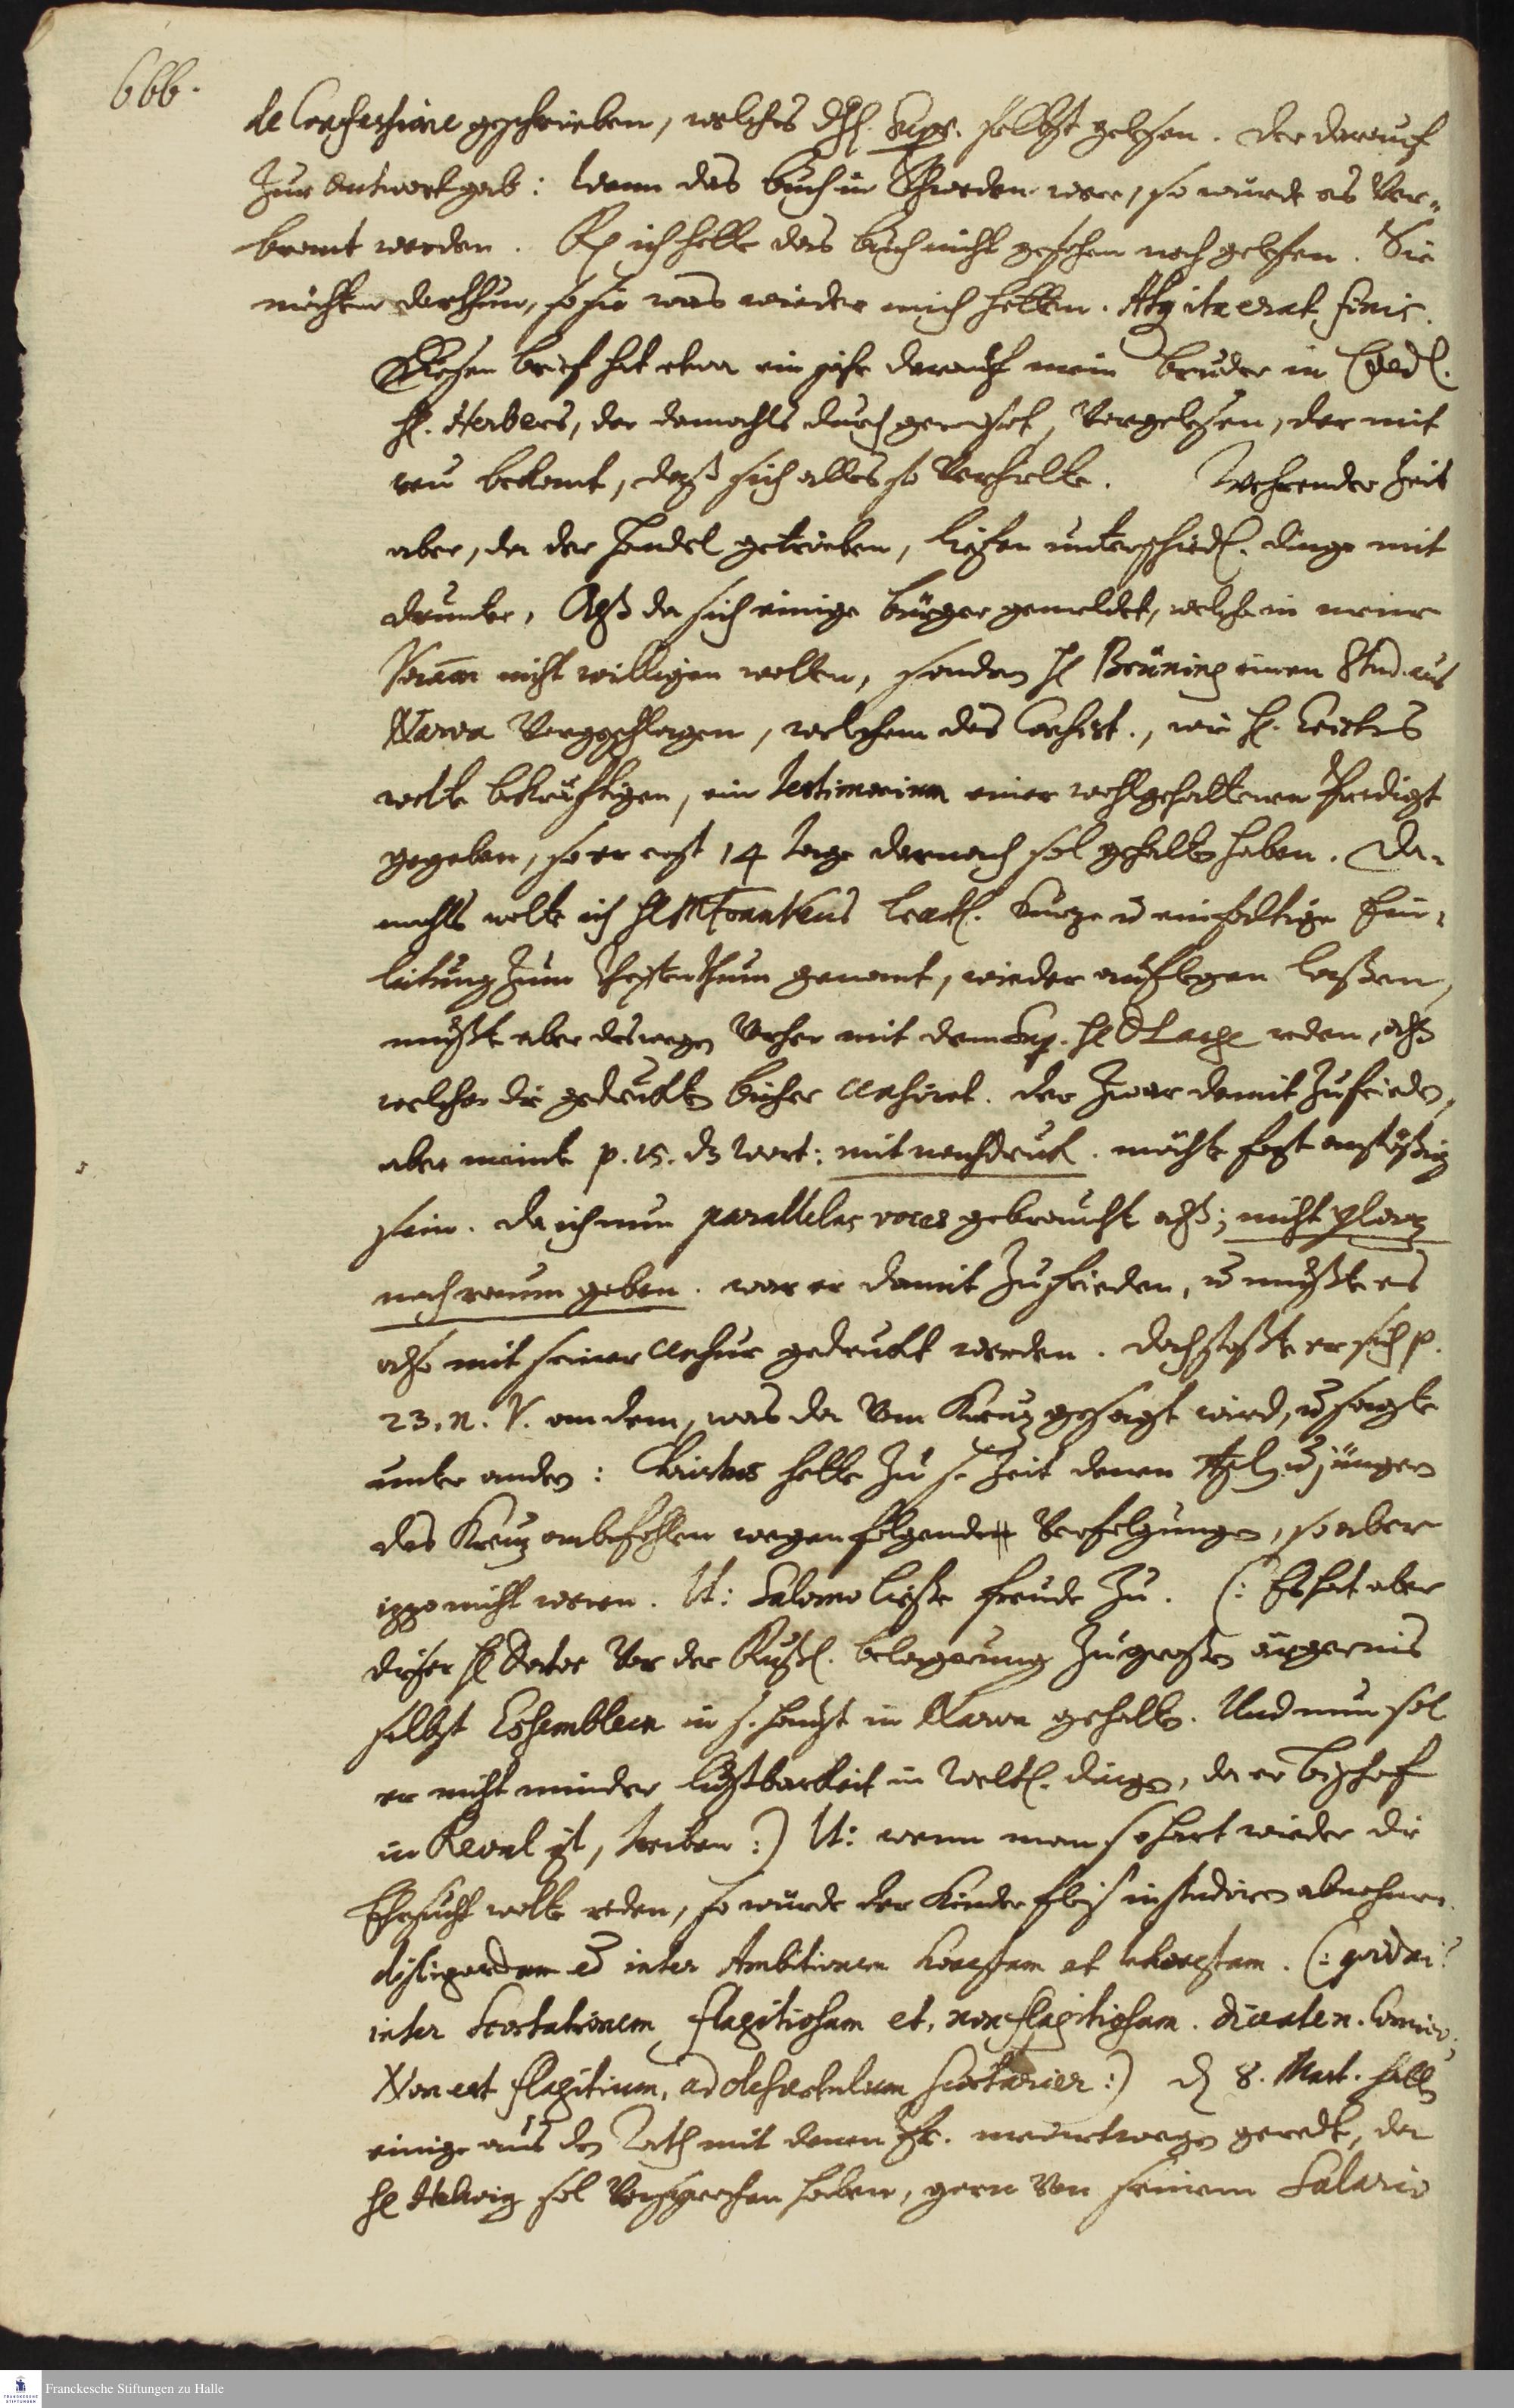 666.
de Confessione geschrieben, welches Hl. Sup. selbst gelesen. Der darauf
zur Antwort gab: Wenn das buch in Schweden were, so wurde es Ver-
brant werden. Rx ich hette das buch nicht gesehen noch gelesen. Sie
möchten darthun, so sie was wieder mich hetten. Atq ita erat finis.
Diesen brief hat etwa ein jahr darauf mein bruder in
H. Herbers, der damahls durch gereiset, Vorgelesen, der mit
bekant, daß sich alles so Verhielte. Wehrender Zeit
aber, da der handel getrieben, liefen unterschiedl. dinge mit
drunter, Alß da sich einige bürger gemeldet, welche in meine
Person nicht willigen wolten, sondern H Brüning einen Stud. aus
Narva Vorgeschlagen, welchem das Consist., wie H.
wolte bekräftigen, ein testimonium einer wohlgehaltenen Predigt
gegeben, so er erst 14 tage darnach sol gehalten haben. Da-
mahls wolte ich H M Frankens Tractl. Kurze u einfaltige Ein-
leitung zum Christenthum genant, wieder auflegen laßen,
mußte aber deswegen Vorher mit dem Sup. H D Lange reden, alß
welcher die gedruckten bücher censiret. der zwar damit zufrieden,
aber meinte p. 15. dz wort: mit nachdruck. möchte fast anstößig
sein. da ich nun parallelas voces gebraucht alß; nicht platz
noch raum geben. war er damit zufrieden, u mußte es
also mit seiner censur gedruckt werden. doch stoßte er sich p.
23. n. V. an dem, was da Vom Kreuz gesagt wird, u sagte
unter andern: Christus hette zu s. Zeit denen Apln u jüngern
das Kreuz anbefohlen wegen folgender Verfolgungen, so aber
izzo nicht weren. It: Salomo ließe freude zu. (: Es hat aber
dieser H Doctor Vor der Rußl. belagerung zu großen ärgernis
selbst Essembleen in s. hause in Narva gehalten. Und nun sol
er nicht minder lustbarkeit in Weltl. dingen, da er bischof
in Reval ist, treiben :) It: wenn man so hart wieder die
Ehrsucht wolte reden, so wurde der Kinder fleis in studiren abnehmen.
distinguendum e inter Ambitionem honestam et inhonestam. (: quidni?
inter Scortationem flagitiosam et, non flagitiosam. dicente n. Comico;
Non est flagitium, adolescentulum scortarier :) d 8. Mart. hetten
einige aus dem Rath mit denen meinetwegen geredt, da
H Helwig sol Versprochen haben, gern Von seinem Salario
Franckesche Stiftungen zu Halle